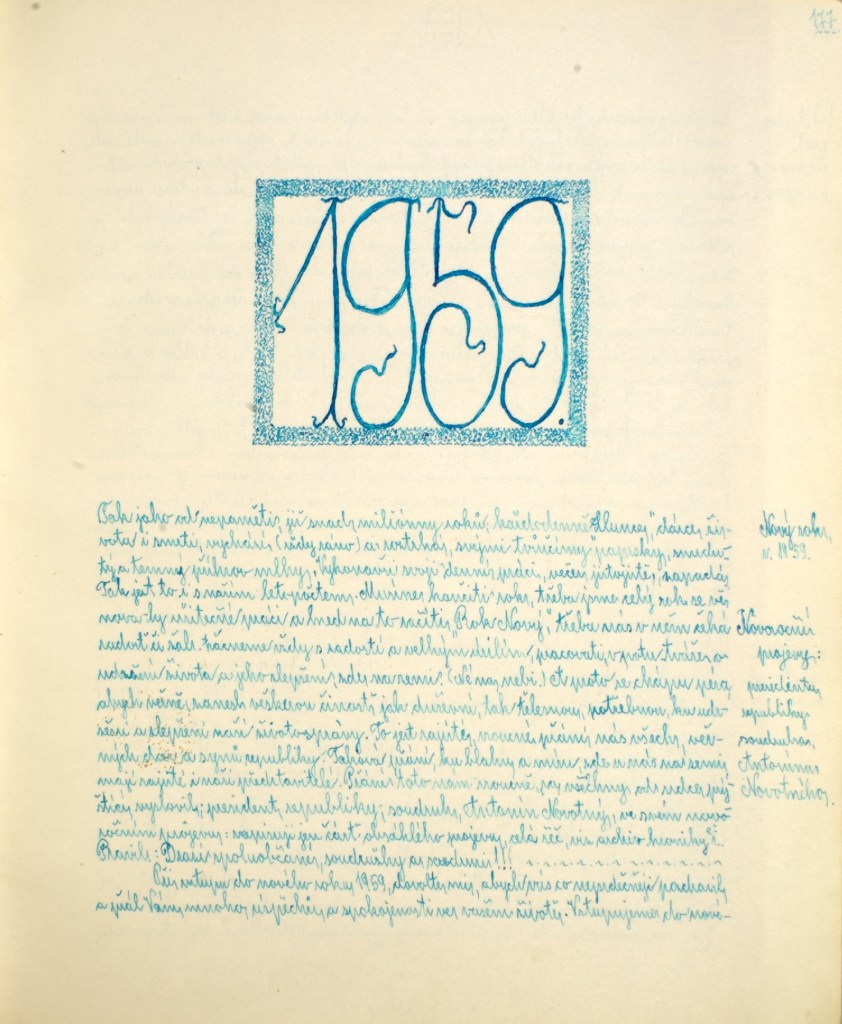 177
1959.
Tak jako od nepaměti, již snad, miliónny roků; každodenně "Slunce", dárce, ži-
vota i smrti, vychází, (vždy ráno) a roztrhá, svými tvůrčími paprsky, smuty a temný příkrov mlhy. Vykonavši svoji denní práci, večer, jistojistě, zapadá,
Tak jest to i s naším letopočtem. Musíme končiti rok, třeba jsme celý rok se vě-
nova-ly užitečné práci a hned na to začíti, "Rok Nový", třeba nás v něm čeká
radost či žal. Začneme vždy s radostí a velkým úsilím, pracovati, v potu tváře, o
udržení života a jeho zlepšení, zde, na zemi. (Né na, nebi.) A proto se chápu péra,
abych věrně, zanesl veškerou činost, jak duševní, tak tělesnou, potřebnou, ku udr-
žení a zlepšení naší životosprávy. To jest zajisté, vroucné, přání, nás všech, věr-
ných dcer a synů republiky. Taková přání, ku blahu a míru, zde u nás na zemi,
mají zajisté i naši představitelé. Přání toto nám vroucně, za, všechny,
vyslovil, president, republiky, soudruh, Antonín Novotný, ve svém novo-
ročním projevu: zapisuji jen část obsáhlého projevu, celá řeč, viz archiv kroniky!..
Pravil: Drazí spoluobčané, soudružky a soudruzi!!!
Při vstupu do nového roku, 1959, dovolte, mi, abych vás co nejsrdečněji pozdravil,
a přál Vám, mnoho, úspěchů, a spokojenosti ve, vašem životě. Vstupujeme do nové-
Nový rok,
r. 1959.
Novoroční
projevy:
presidenta,
republiky
soudruha,
Antonína
Novotného.